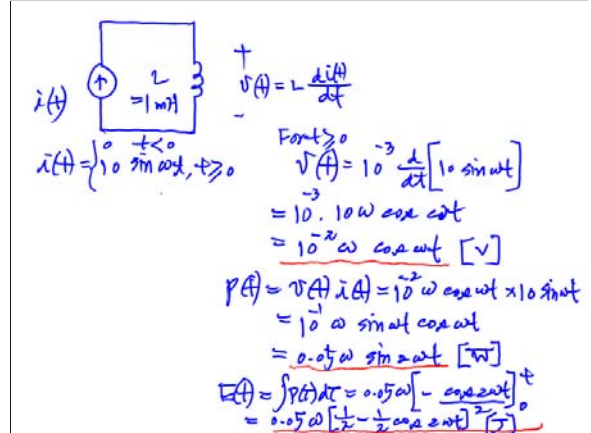 i(t)
L
= 1 mH
+
v(t) = L di(t)/dt
-
i(t) = { 0 t<0
10 sin ωt, t ≥ 0
For t ≥ 0
v(t) = 10^-3 d/dt [10 sin ωt]
= 10^-3 . 10 ω cos ωt
= 10^-2 ω cos ωt [V]
p(t) = v(t) i(t) = 10^-2 ω cos ωt × 10 sin ωt
= 10^-1 ω sin ωt cos ωt
= 0.05 ω sin 2ωt [W]
E(t) = ∫p(τ)dτ = 0.05 ω [- cos 2ωt / 2]_0^t
= 0.05 ω [1/2 - 1/2 cos 2ωt] [J]